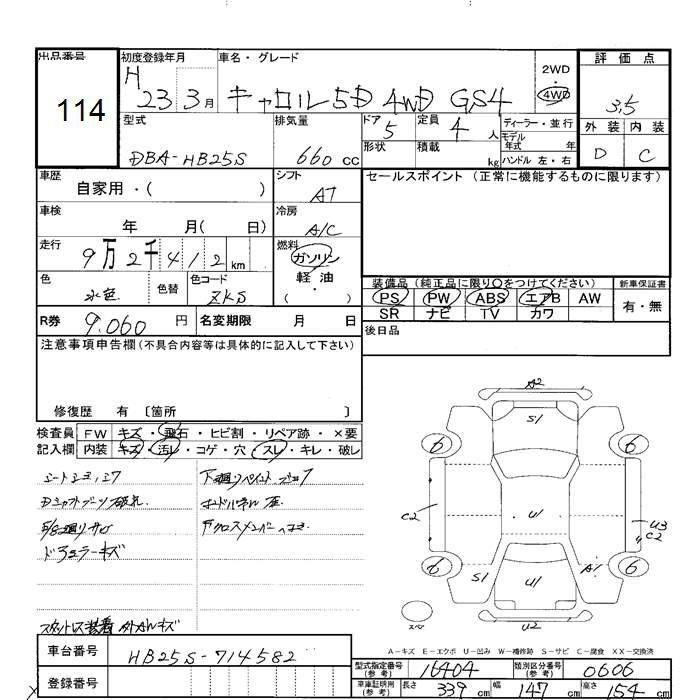 出品番号
114
初度登録年月
H
23 3月
車名・グレード
キャロル5D 4WD GS4
2WD
4WD
評価点
3,5
外装 内装
D C
型式
DBA-HB25S
排気量
660 cc
ドア
5
形状
定員
4 人
積載
kg
ディーラー・並行
モデル
年式 年
ハンドル 左・右
車歴
自家用・( )
シフト
AT
車検
年 月( 日)
冷房
A/C
走行
9万2千412km
燃料
ガソリン
軽油
( ・ )
色
水色
色替
色コード
ZKS
R券
9,060 円
名変期限 月 日
セールスポイント (正常に機能するものに限ります)
装備品 (純正品に限り○をつけてください)
PS PW ABS エアB AW
SR ナビ TV カワ
新車保証書
有・無
後日品
注意事項申告欄(不具合内容等は具体的に記入して下さい)
修復歴 有 〔箇所 〕
検査員
記入欄
FW キズ・飛石・ヒビ割・リペア跡・×要
内装 キズ・汚レ・コゲ・穴・スレ・キレ・破レ
A2
S1
6 6
C2
U1
U3
C2
6 6
S1
U1
A1
U2
スペ
A-キズ E-エクボ U-凹み W-補修跡 S-サビ C-腐食 XX-交換済
車台番号
HB25S-714582
登録番号
型式指定番号
(参考)
16404
類別区分番号
(参考)
0606
車庫証明用
(参考)
長さ 339 cm 幅 147 cm 高さ 154 cm